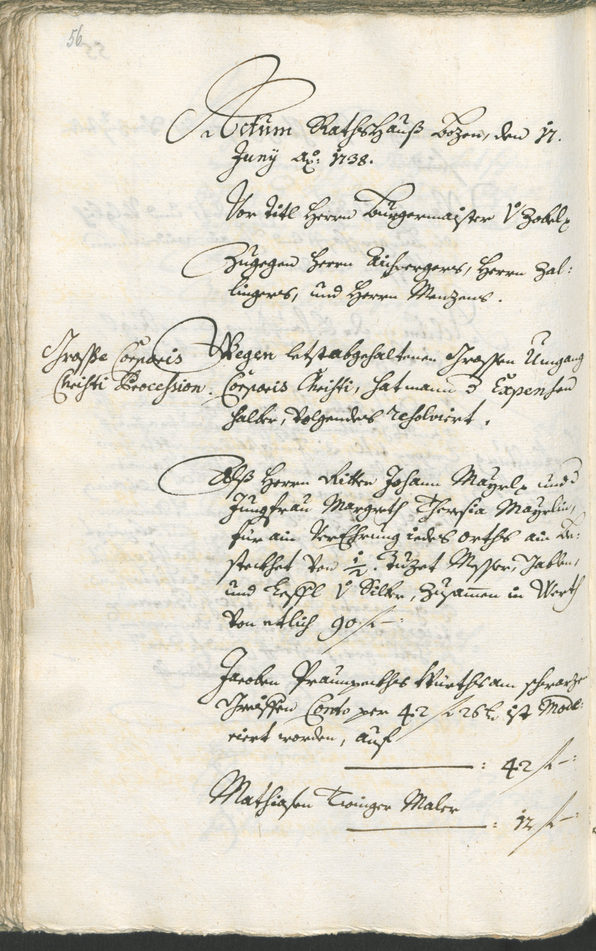 56
Actum Rathshauß Bozen, den 17.
Juny Aõ: 1738.
Vor Titl Herrn Burgermaister V Zobel
Zugegen Herrn Aichpergers, Herrn Zal:
lingers, und Herrn Menzens.
Grosse Corporis
Christi Procession.
Wegen letst abgehaltenen Grossen Umgang
Corporis Christi, hat mann d Expensen
halber, volgendes resolviert,
Alß Herrn Ritter Johann Mayrl und
Jungfrau Margreth Theresia Mayrlin,
für ain Verehrung iedes Orths ain Be:
steckhet von ½ Duzet Messer, Gabln,
und Leffl V Silber, Zusamen in Werth
von etlich 90 f –
Jacoben Praunpachhes Würths am schwarze
Grossen Conto per 42 f 26 k ist Mode:
riert worden, auf
: 42 f –:
Mathiasen Twinger Maler
: 12 f –: